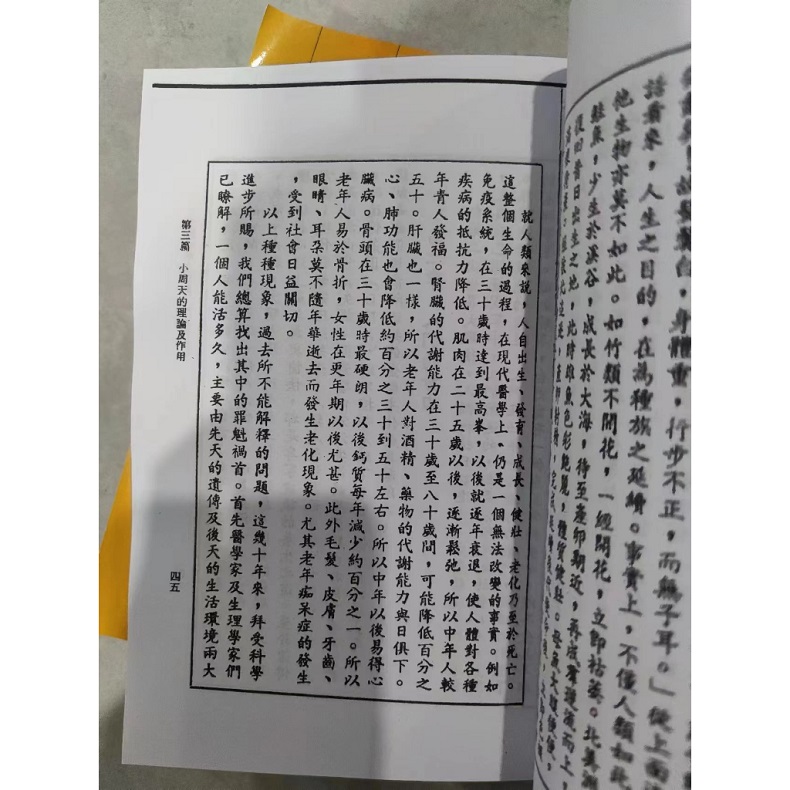 髮鬢白，身體重，行步不正，而無子耳。」從上面
話看來，人生之目的，在為種族之延續。事實上，不僅人類如此
他生物亦莫不如此。如竹類不開花，一經開花，立即枯萎。北美洲
鮭魚，少生於溪谷，成長於大海，待至產卵期近，再成群逆流而上，
復回昔日出生之地，此時雄魚色彩艷麗，體質健壯。母魚大腹便便，
就人類來說，人自出生、發育、成長、健壯、老化乃至於死亡。
這整個生命的過程，在現代醫學上，仍是一個無法改變的事實。例如
免疫系統，在三十歲時達到最高峯，以後就逐年衰退，使人體對各種
疾病的抵抗力降低。肌肉在二十五歲以後，逐漸鬆弛，所以中年人較
年青人發福。腎臟的代謝能力在三十歲至八十歲間，可能降低百分之
五十。肝臟也一樣，所以老年人對酒精、藥物的代謝能力與日俱下。
心、肺功能也會降低約百分之三十到五十左右。所以中年以後易得心
臟病。骨頭在三十歲時最硬朗，以後鈣質每年減少約百分之一。所以
老年人易於骨折，女性在更年期以後尤甚。此外毛髮、皮膚、牙齒、
眼睛、耳朵莫不隨年華逝去而發生老化現象。尤其老年痴呆症的發生
，受到社會日益關切。
以上種種現象，過去所不能解釋的問題，這幾十年來，拜受科學
進步所賜，我們總算找出其中的罪魁禍首。首先醫學家及生理學家們
已瞭解，一個人能活多久，主要由先天的遺傳及後天的生活環境兩大
第三篇　小周天的理論及作用
四五